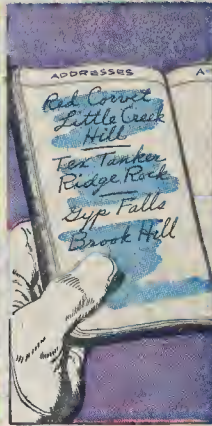 ADDRESSES
A
Red Corvet
Little Creek
Hill
Tex Tanker
Ridge Rock
Gyp Falls
Brook Hill